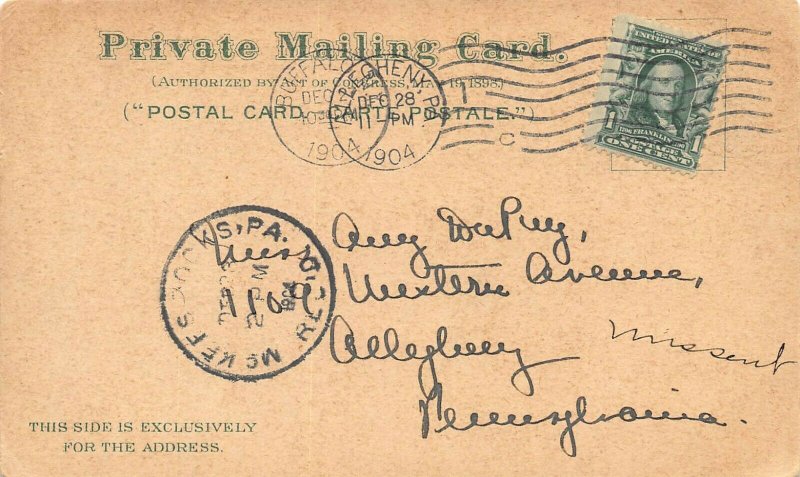 Private Mailing Card.
(AUTHORIZED BY ACT OF CONGRESS, MAY 19, 1898.)
("POSTAL CARD, CARTE POSTALE.")
BUFFALO
DEC
1904
ALLEGHENY, PA.
DEC 28
11 PM
1904
C
UNITED STATES OF
AMERICA
1 FRANKLIN 1
POSTAGE
ONE CENT
McKEES ROCKS, PA.
REC'D.
PM
1904
Miss Amy DuPuy,
1104 Western Avenue,
Allegheny
Missent
Pennsylvania.
THIS SIDE IS EXCLUSIVELY
FOR THE ADDRESS.